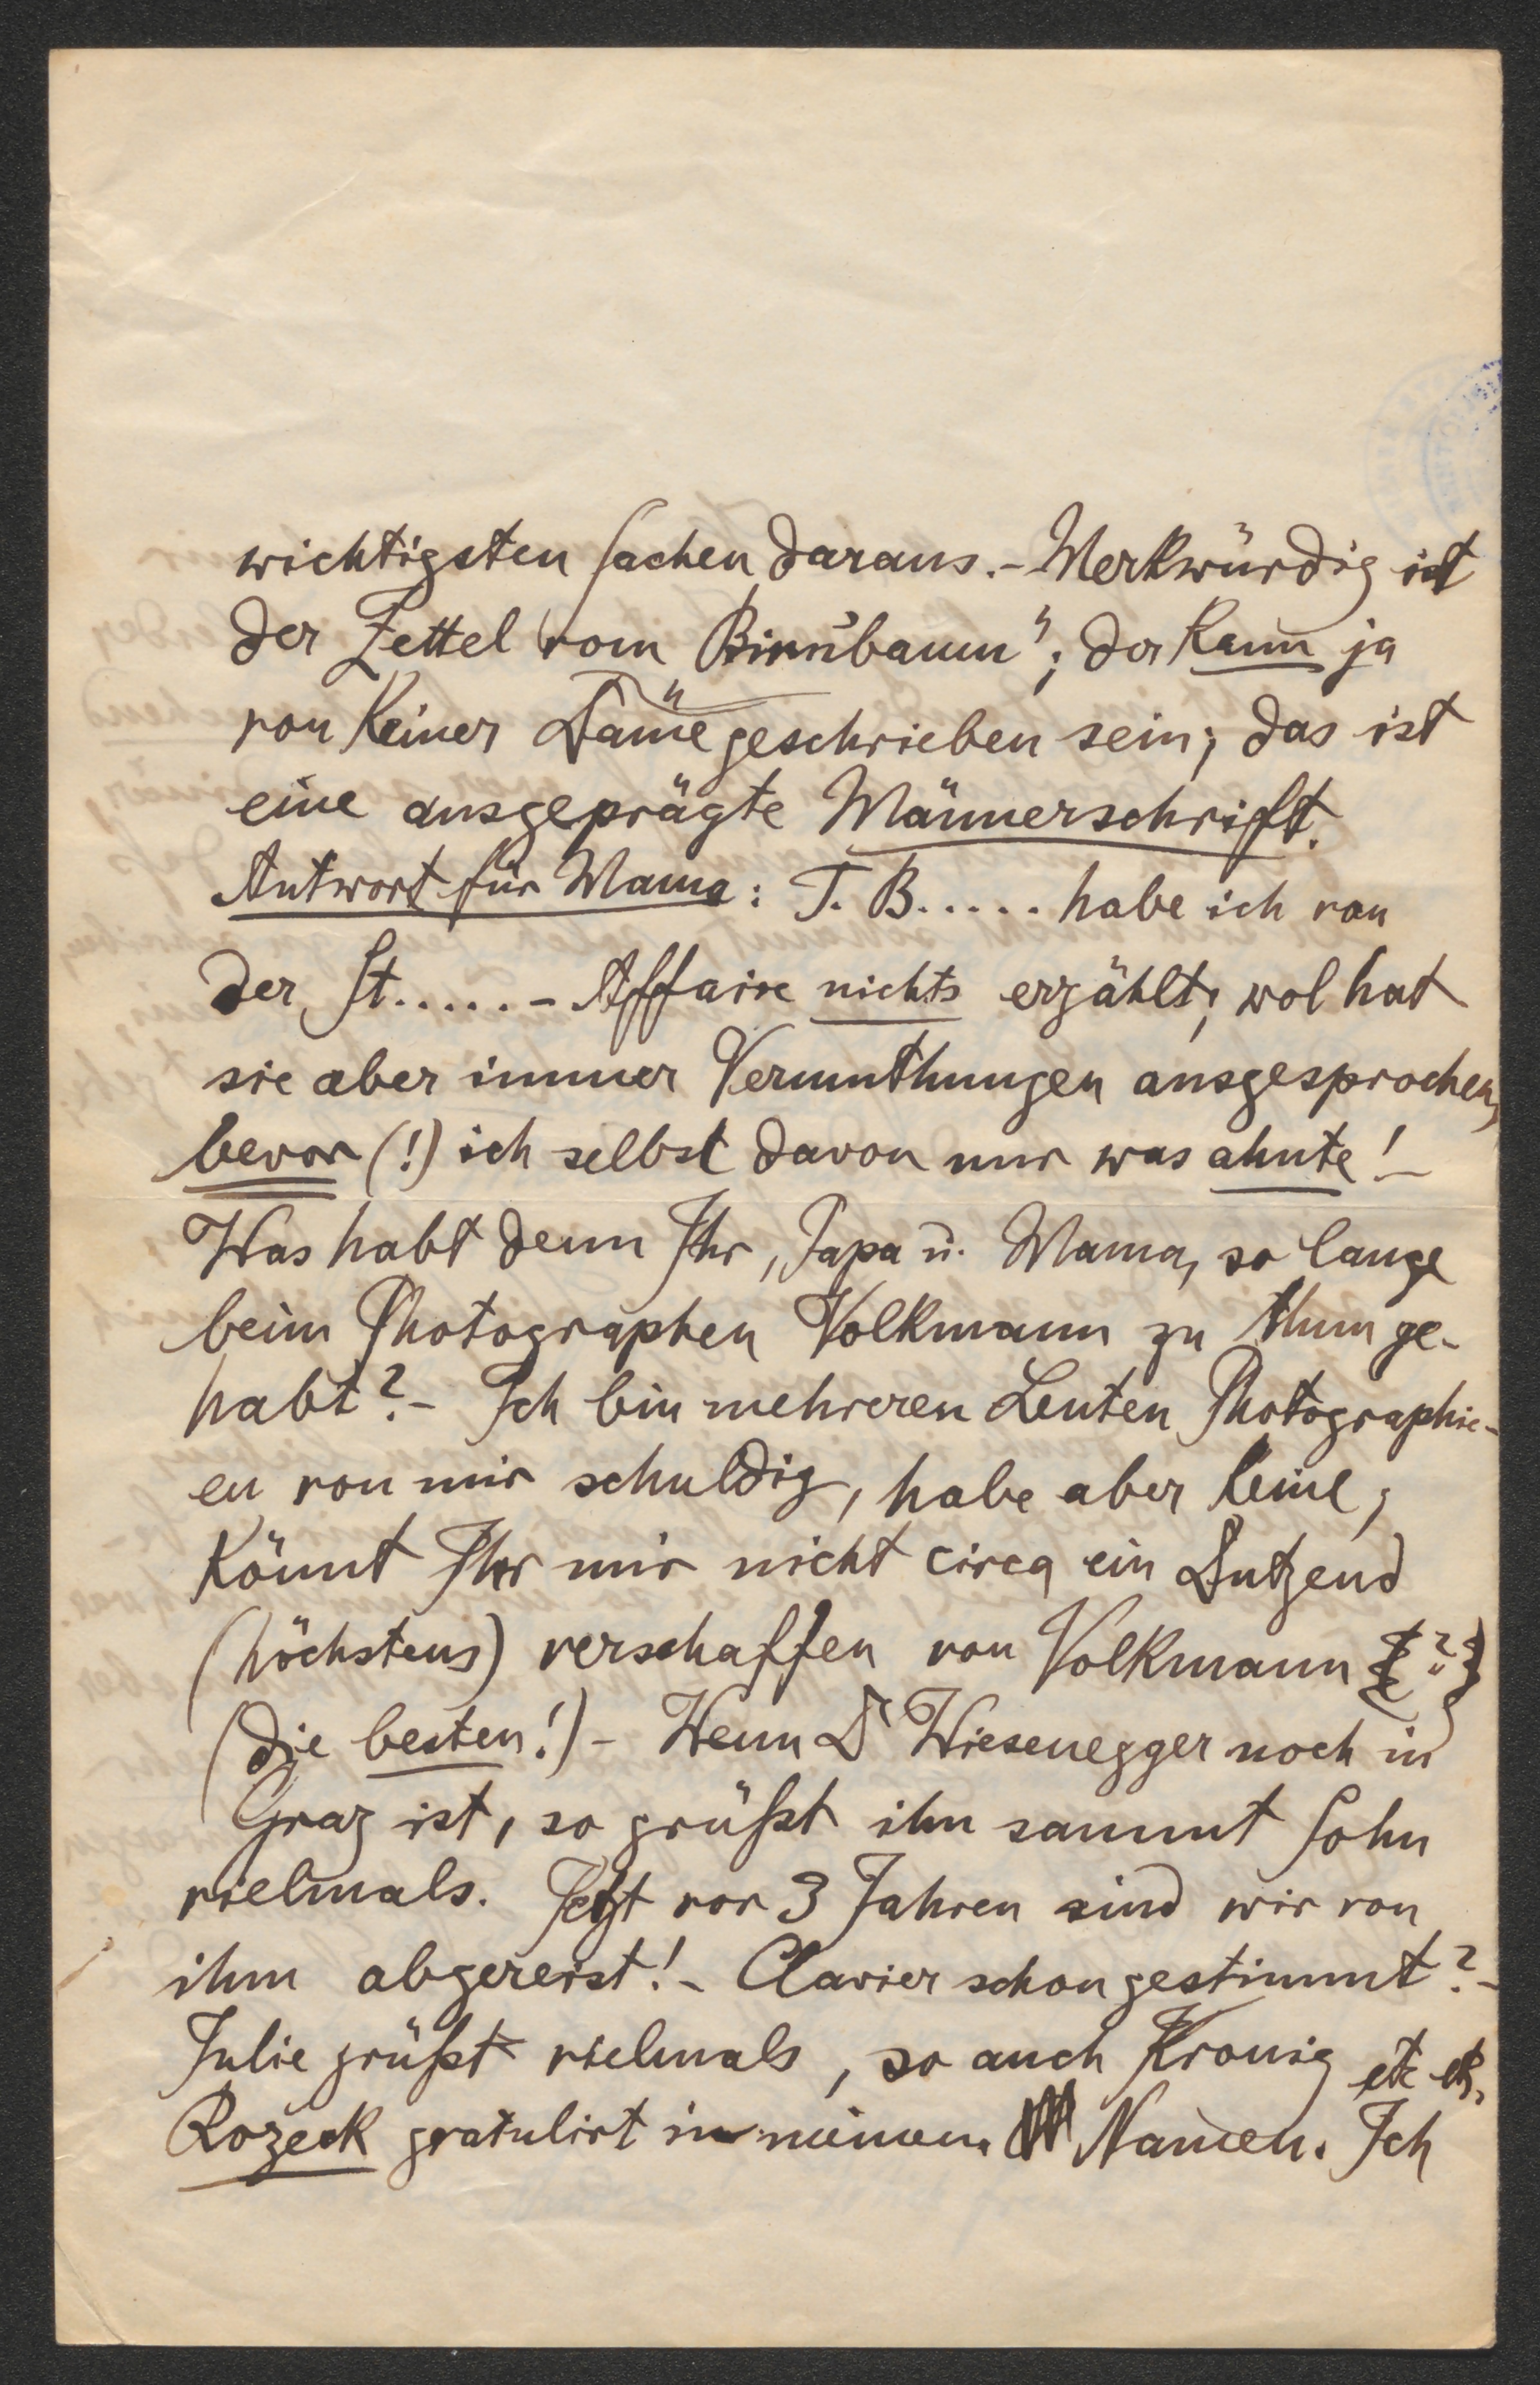 wichtigsten Sachen daraus. – Merkwürdig ist
der Zettel vom Birnbaum"; der kann ja
von keiner Dame geschrieben sein; das ist
eine ausgeprägte Männerschrift.
Antwort für Mama: T. B..... habe ich von
der St..... - Affaire nichts erzählt; wol hat
sie aber immer Vermuthungen ausgesprochen,
bevor (!) ich selbst davon nur was ahnte! –
Was habt denn Ihr, Papa u. Mama, so lange
beim Photographen Volkmann zu thun ge-
habt? – Ich bin mehreren Leuten Photographie-
en von mir schuldig, habe aber keine;
könnt Ihr mir nicht circa ein Dutzend
(höchstens) verschaffen von Volkmann ?
(die besten!) – Wenn Dr Wiesenegger noch in
Graz ist, so grüßt ihn sammt Sohn
vielmals. Jetzt vor 3 Jahren sind wir von
ihm abgereist! – Clavier schon gestimmt? –
Julie grüßt vielmals, so auch Kronig etc etc.
Rozeck gratulirt in meinem Namen. Ich